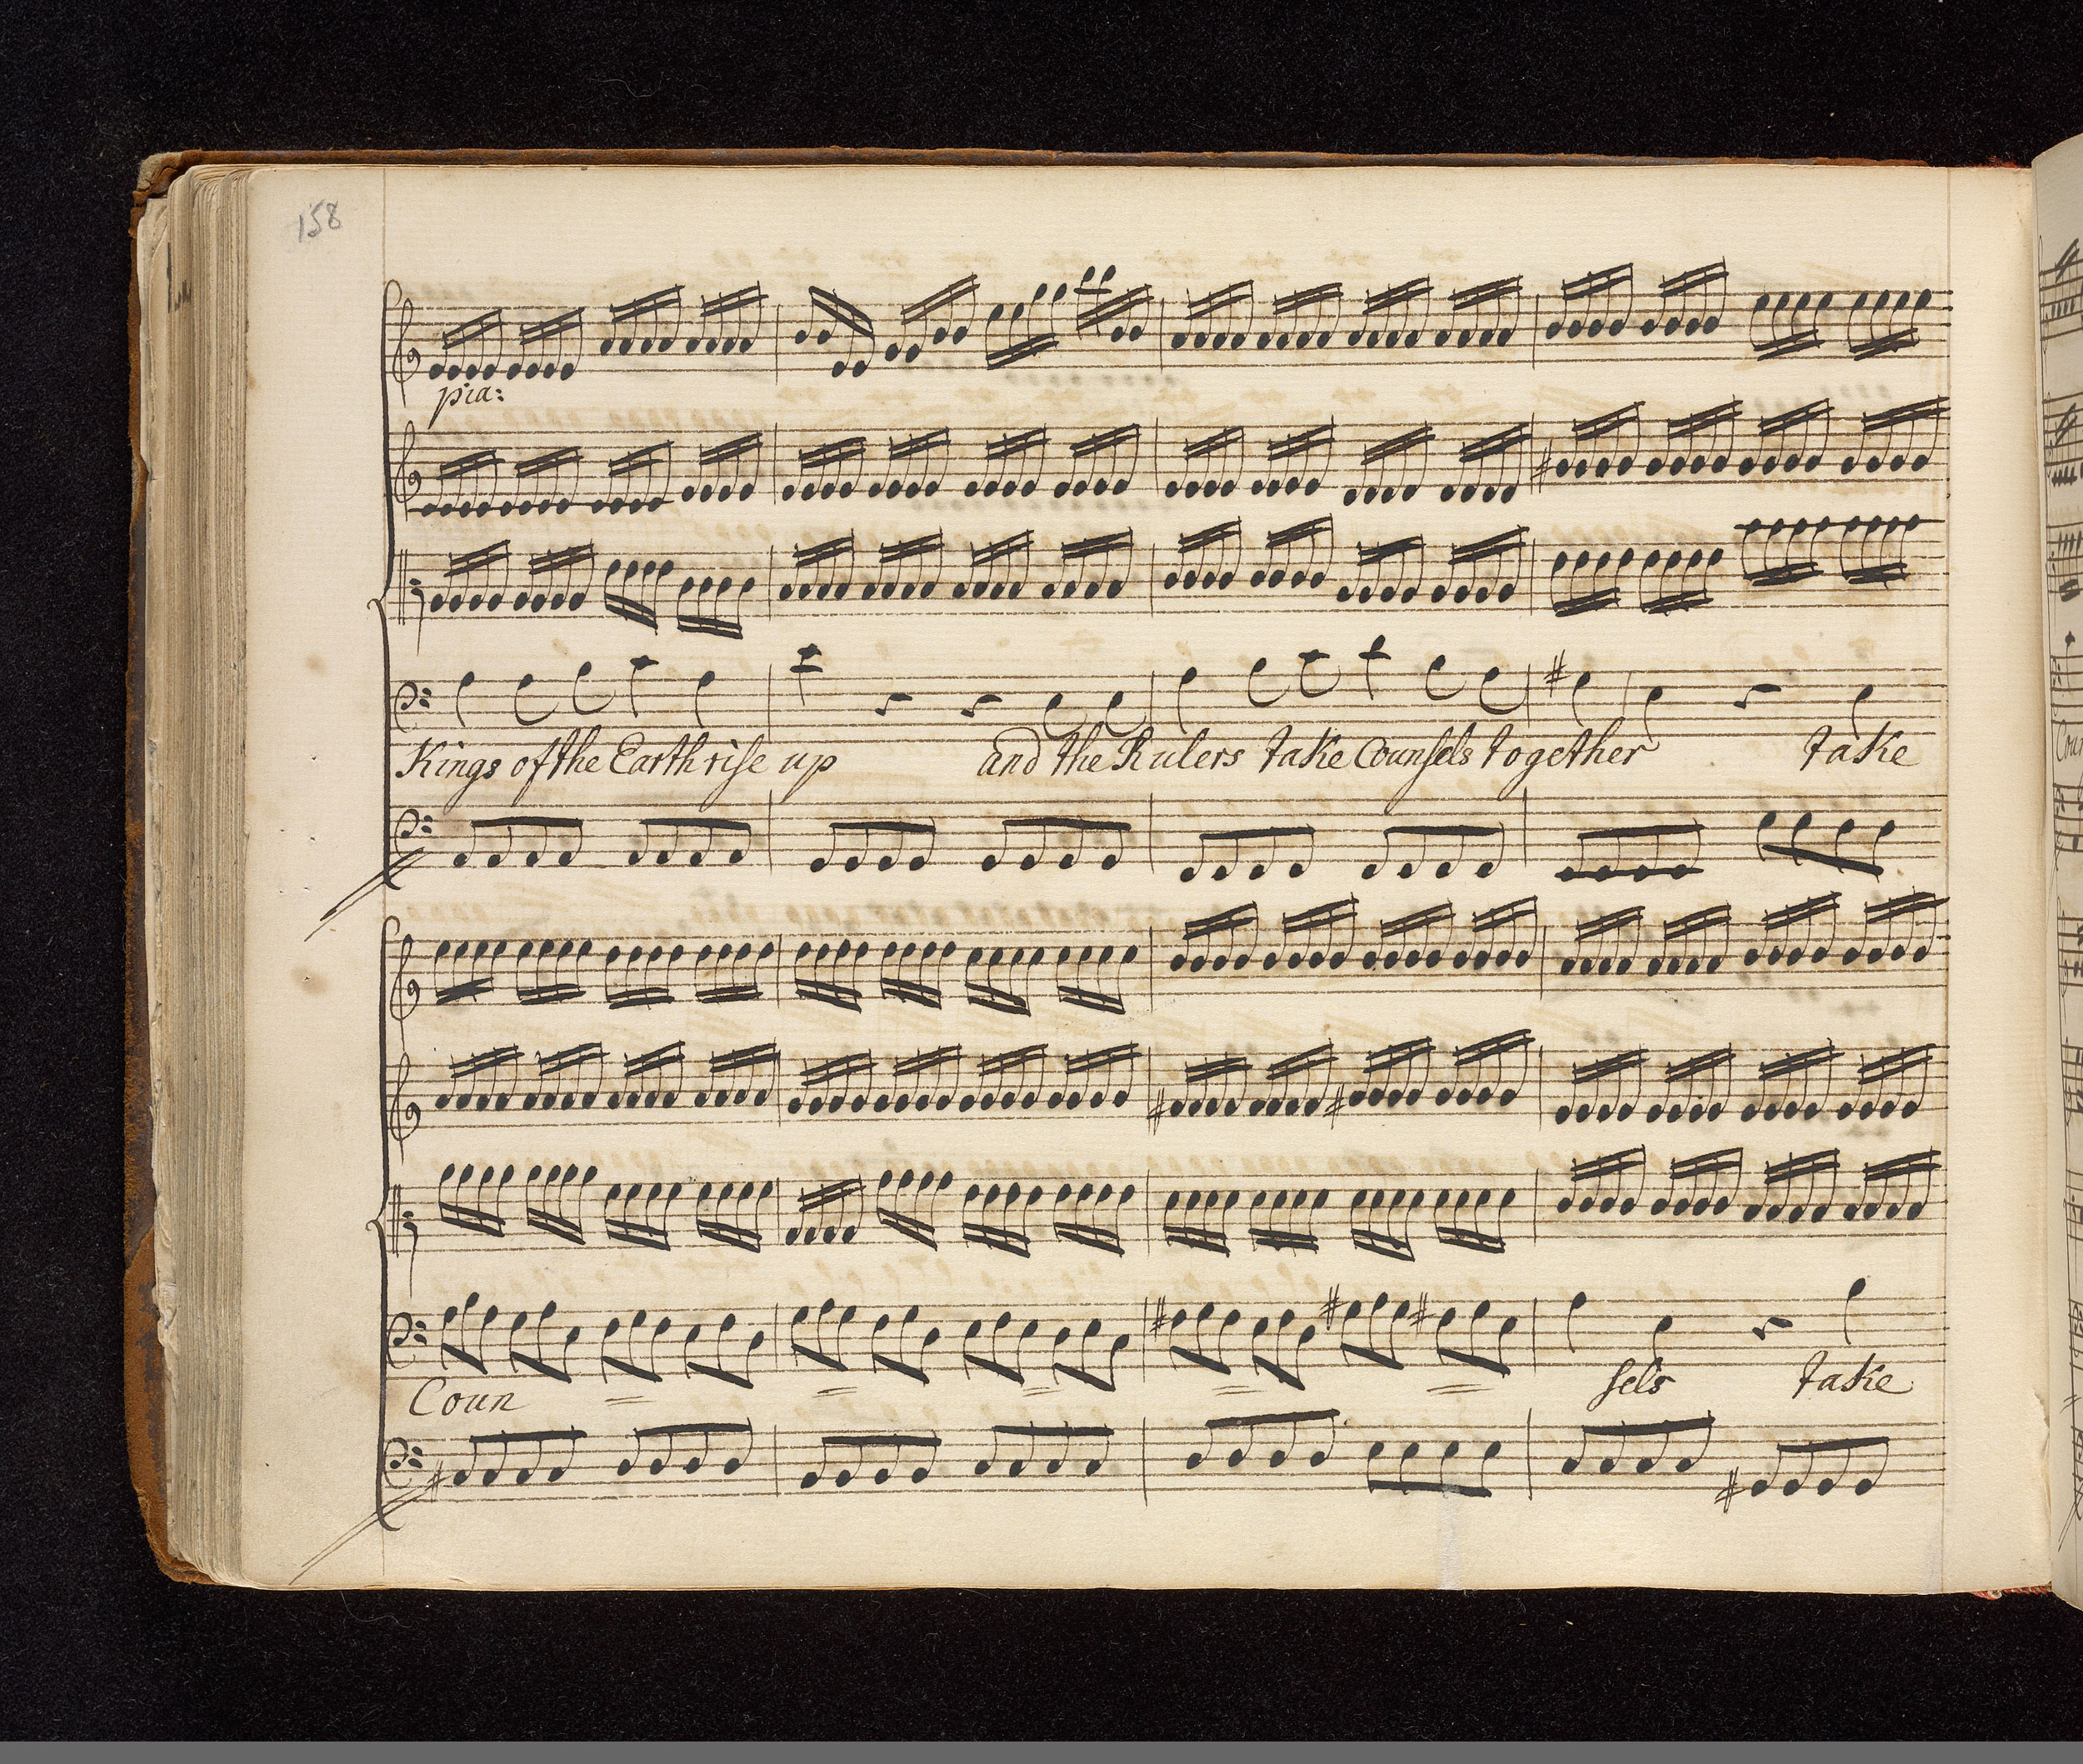 158
pia:
Kings of the Earth rise up and the Rulers take Counsels together take
Coun = = = = = sels take